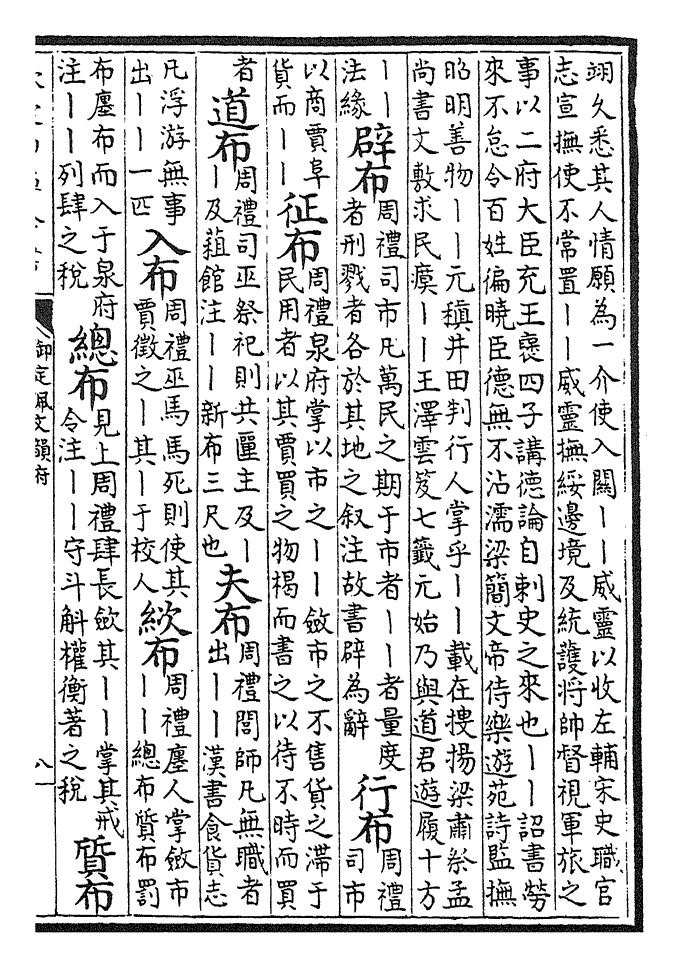 翊久悉其人情願為一介使入關丨丨威靈以收左輔宋史職官
志宣撫使不常置丨丨威靈撫綏邊境及統護將帥督視軍旅之
事以二府大臣充王襃四子講德論自刺史之來也丨丨詔書勞
來不怠令百姓徧曉臣德無不沾濡梁簡文帝侍樂遊苑詩監撫
昭明善物丨丨元稹井田判行人掌乎丨丨載在搜揚梁肅祭孟
尚書文敷求民瘼丨丨王澤雲笈七籤元始乃與道君遊履十方
丨丨
法緣
辟布
周禮司市凡萬民之期于市者丨丨者量度
者刑戮者各於其地之叙注故書辟為辭
行布
周禮
司市
以商賈阜
貨而丨丨
征布
周禮泉府掌以市之丨丨斂市之不售貨之滯于
民用者以其賈買之物楬而書之以待不時而買
者
道布
周禮司巫祭祀則共匰主及丨
丨及蒩館注丨丨新布三尺也
夫布
周禮閭師凡無職者
出丨丨漢書食貨志
凡浮游無事
出丨丨一匹
入布
周禮巫馬馬死則使其
賈徵之丨其丨于校人
絘布
周禮廛人掌斂市
丨丨總布質布罰
布廛布而入于泉府
注丨丨列肆之稅
總布
見上周禮肆長斂其丨丨掌其戒
令注丨丨守斗斛權衡著之稅
質布
御定佩文韻府
八